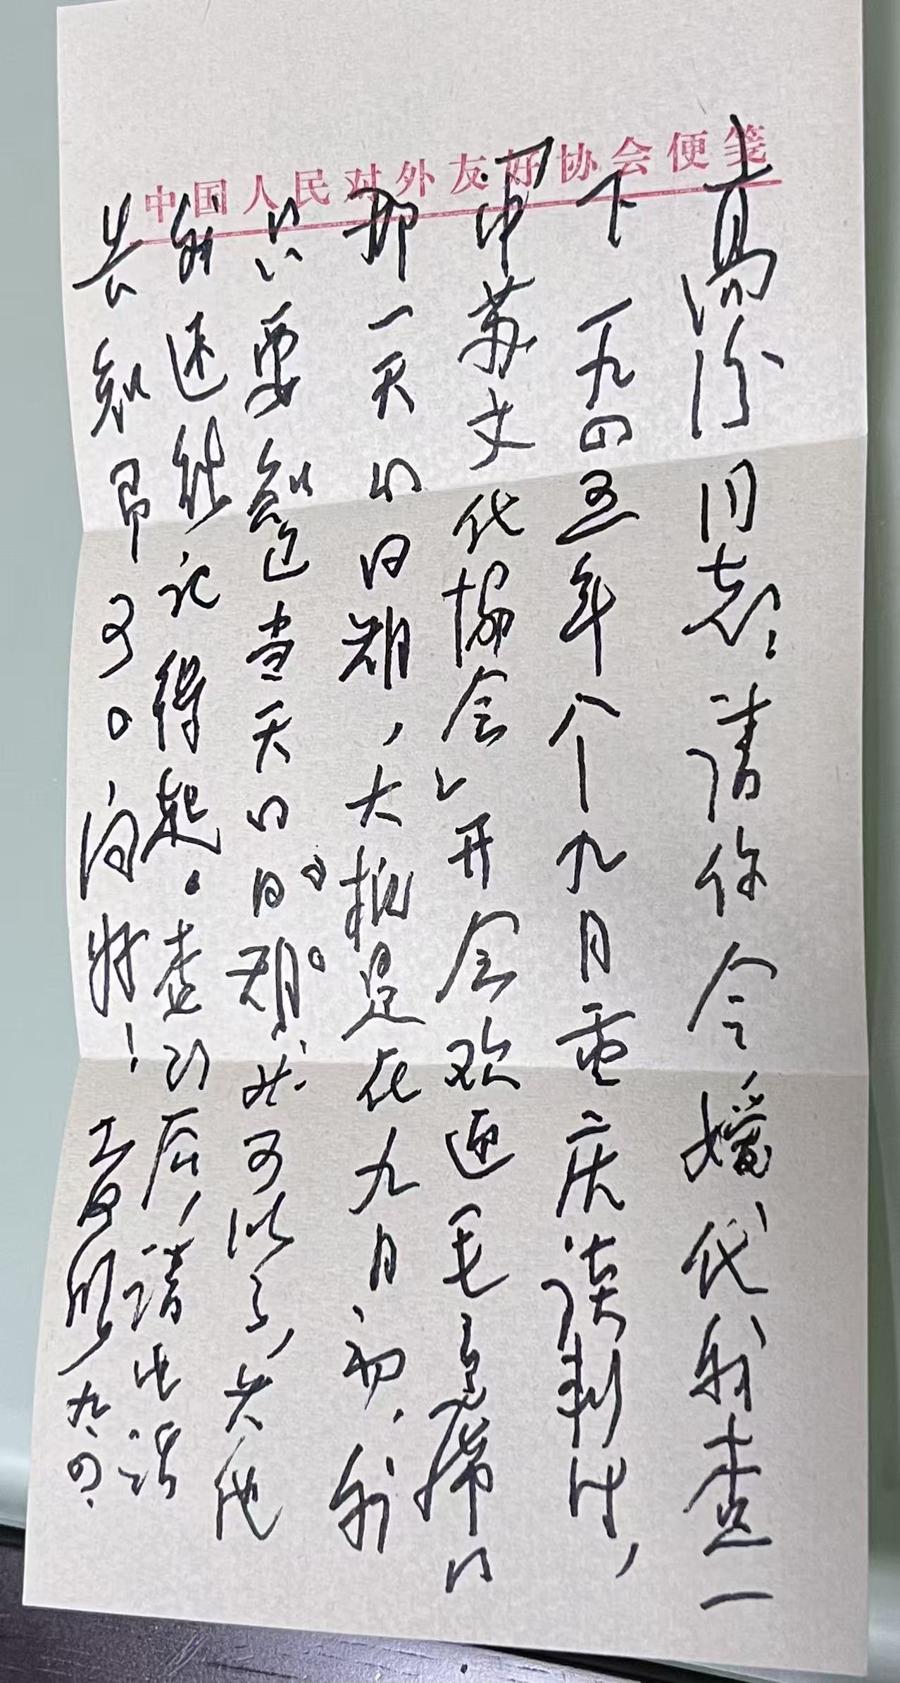 中国人民对外友好协会便笺
高汾同志：请你令媛代我查一
下一九四五年个九月重庆谈判时，
中苏文化协会开会欢迎毛主席的
那一天的日期，大抵是在九月初，我
只要知道当天的日期就可以了，其他
我还能记得起。查到后，请电话
告知即可。问好！九、四、